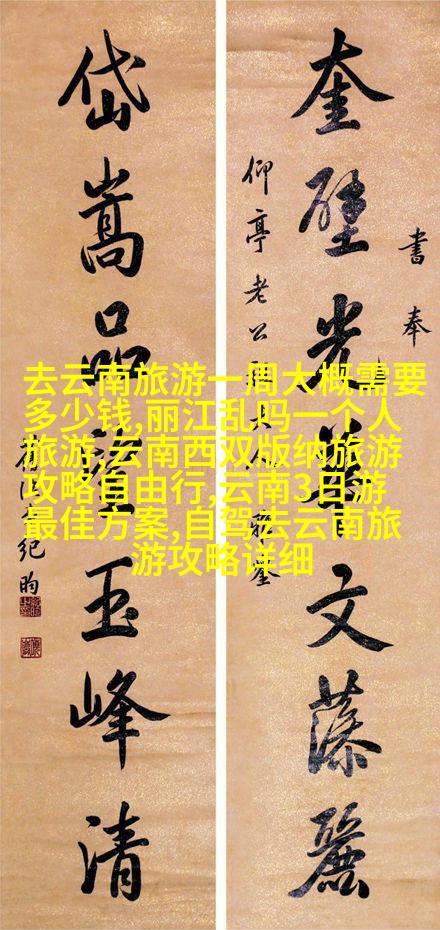 書奉
仰亭老公
奎壁光華文藻麗
岱嵩品望玉峰清
紀昀
去云南旅游一周大概需要
多少钱,丽江乱吗一个人
旅游,云南西双版纳旅游
攻略自由行,云南3日游
最佳方案,自驾去云南旅
游攻略详细